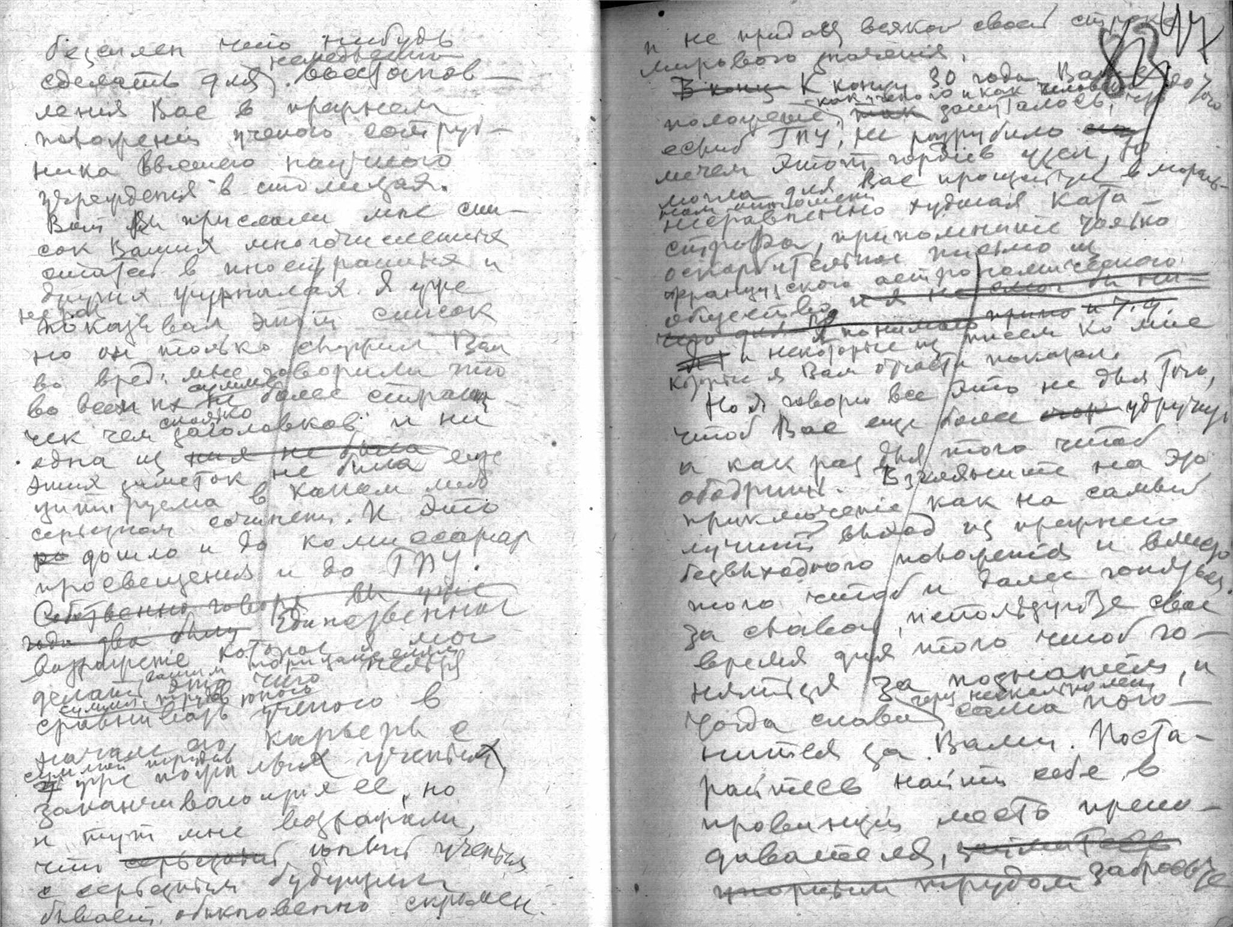 безсилен чего нибудь
сделать для немедленно восстанов-
ления Вас в прежнем
положеніи ученого сотруд-
ника высшего научного
учреждения в столицах.
Вот Вы прислали мне спи-
сок Ваших многочисленных
статей в иностранных и
других журналах. Я уже
показывал этот список
но он только вредил Вам
мне говорили что
во всех их не более страни-
чек чем заголовков, и ни
одна из них не была
этих заметок не была еще
цитируема в каком либо
серьезном сочинении. И это
дошло и до комиссариат
просвещения и до ГПУ.
Собственно говоря вы уже
года два были Единственное
возражение которое я мог
делать это что нельзя
сравнивать ученого в
начале его карьеры с
уже пожилых ученых
заканчивающих ее, но
и тут мне возражали,
что серьезный юный ученый
с серьезным будущим
бывает обыкновенно скромен
и не придавая всякой своей строчке
мирового значения.
В конц К концу 30 года Ваше
положение, как ученого и как человека так запуталось, что
еслиб ГПУ, не разрубило
мечем этот гордиев узел, то
могла для Вас произойти в мораль-
ном отношении
несравненно худшая ката-
строфа, припомните
оскорбительное письмо
французского астрономического
общества и я не смог бы ни
и некоторые из писем ко мне
которые я Вам отчасти показал.
Но я говорю все это не для того,
чтоб Вас еще более удручить,
а как раз для того чтоб
ободрить. Взгляните на это
приключеніе как на самый
лучший выход из прежнего
безвыходного положения и вместо
того чтоб и далее гоняться
за славой, используйте свое
время для того чтоб го-
няться за познанием, и
тогда слава через несколько лет сама пого-
нится за Вами. Поста-
райтесь найти себе в
провинции место препо-
давателя, займитесь
упорным трудом забросьте